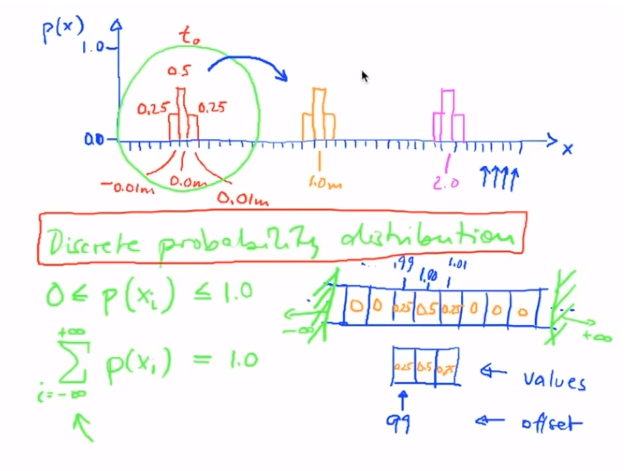 p(x)
1.0
t₀
0.5
0.25 0.25
0.0
x
-0.01m 0.0m 0.01m
1.0m
2.0
Discrete probability distribution
0 ≤ p(xᵢ) ≤ 1.0
... .99 1.00 1.01
0 0 0.25 0.5 0.25 0 0 0
-∞ +∞
+∞
∑ p(xᵢ) = 1.0
i=-∞
0.25 0.5 0.25 ← values
99 ← offset